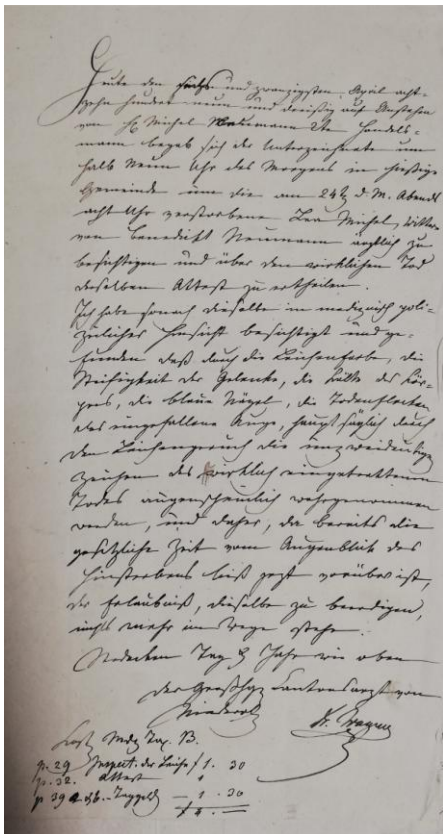 Heute den sechs und zwanzigsten April acht-
zehn hundert neun und dreißig auf Anstehen
von H. Michel Neumann 2te Handels-
mann begab sich der Unterzeichnete um
halb Neun Uhr des Morgens in hiesige
Gemeinde um die am 24t d. M. Abends
acht Uhr verstorbene Lea Michel, Wittwe
von Benedikt Neumann ärztlich zu
besichtigen und über den wirklichen Tod
derselben Attest zu ertheilen.
Ich habe sonach dieselbe in medizinisch poli-
zeilicher Hinsicht besichtigt und ge-
funden daß durch die Leichenfarbe, die
Steifigkeit der Gelenke, die Kälte des Kör-
pers, die blaue Nägel, die Todenflecken
das eingefallene Auge, hauptsächlich durch
den Leichengeruch die unzweideutige
Zeichen des wirklich eingetrettenen
Todes augenscheinlich wahrgenommen
werden, und daher, da bereits die
gesetzliche Zeit vom Augenblick des
Hinsterbens bis jezt vorüber ist,
der Erlaubniß, dieselbe zu beerdigen,
nichts mehr im Wege stehe.
Tag & Jahr wie oben
Der Großhzg Cantonsarzt von
Kost Tax. B.
p. 29 Inspect. der Leiche f 1. 30
p. 32. Attest
p 39 Taggeld — 1. 30